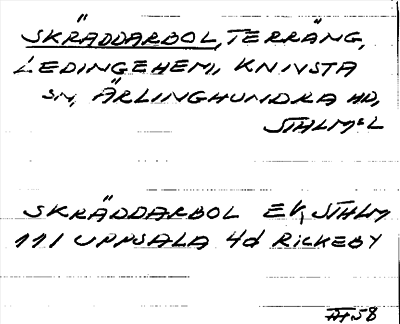 SKRÄDDARBOL, TERRÄNG,
LEDINGEHEM, KNIVSTA
SN, ÄRLINGHUNDRA HD,
STHLMS L
SKRÄDDARBOL EK, STHLM
111 UPPSALA 4d RICKEBY
58